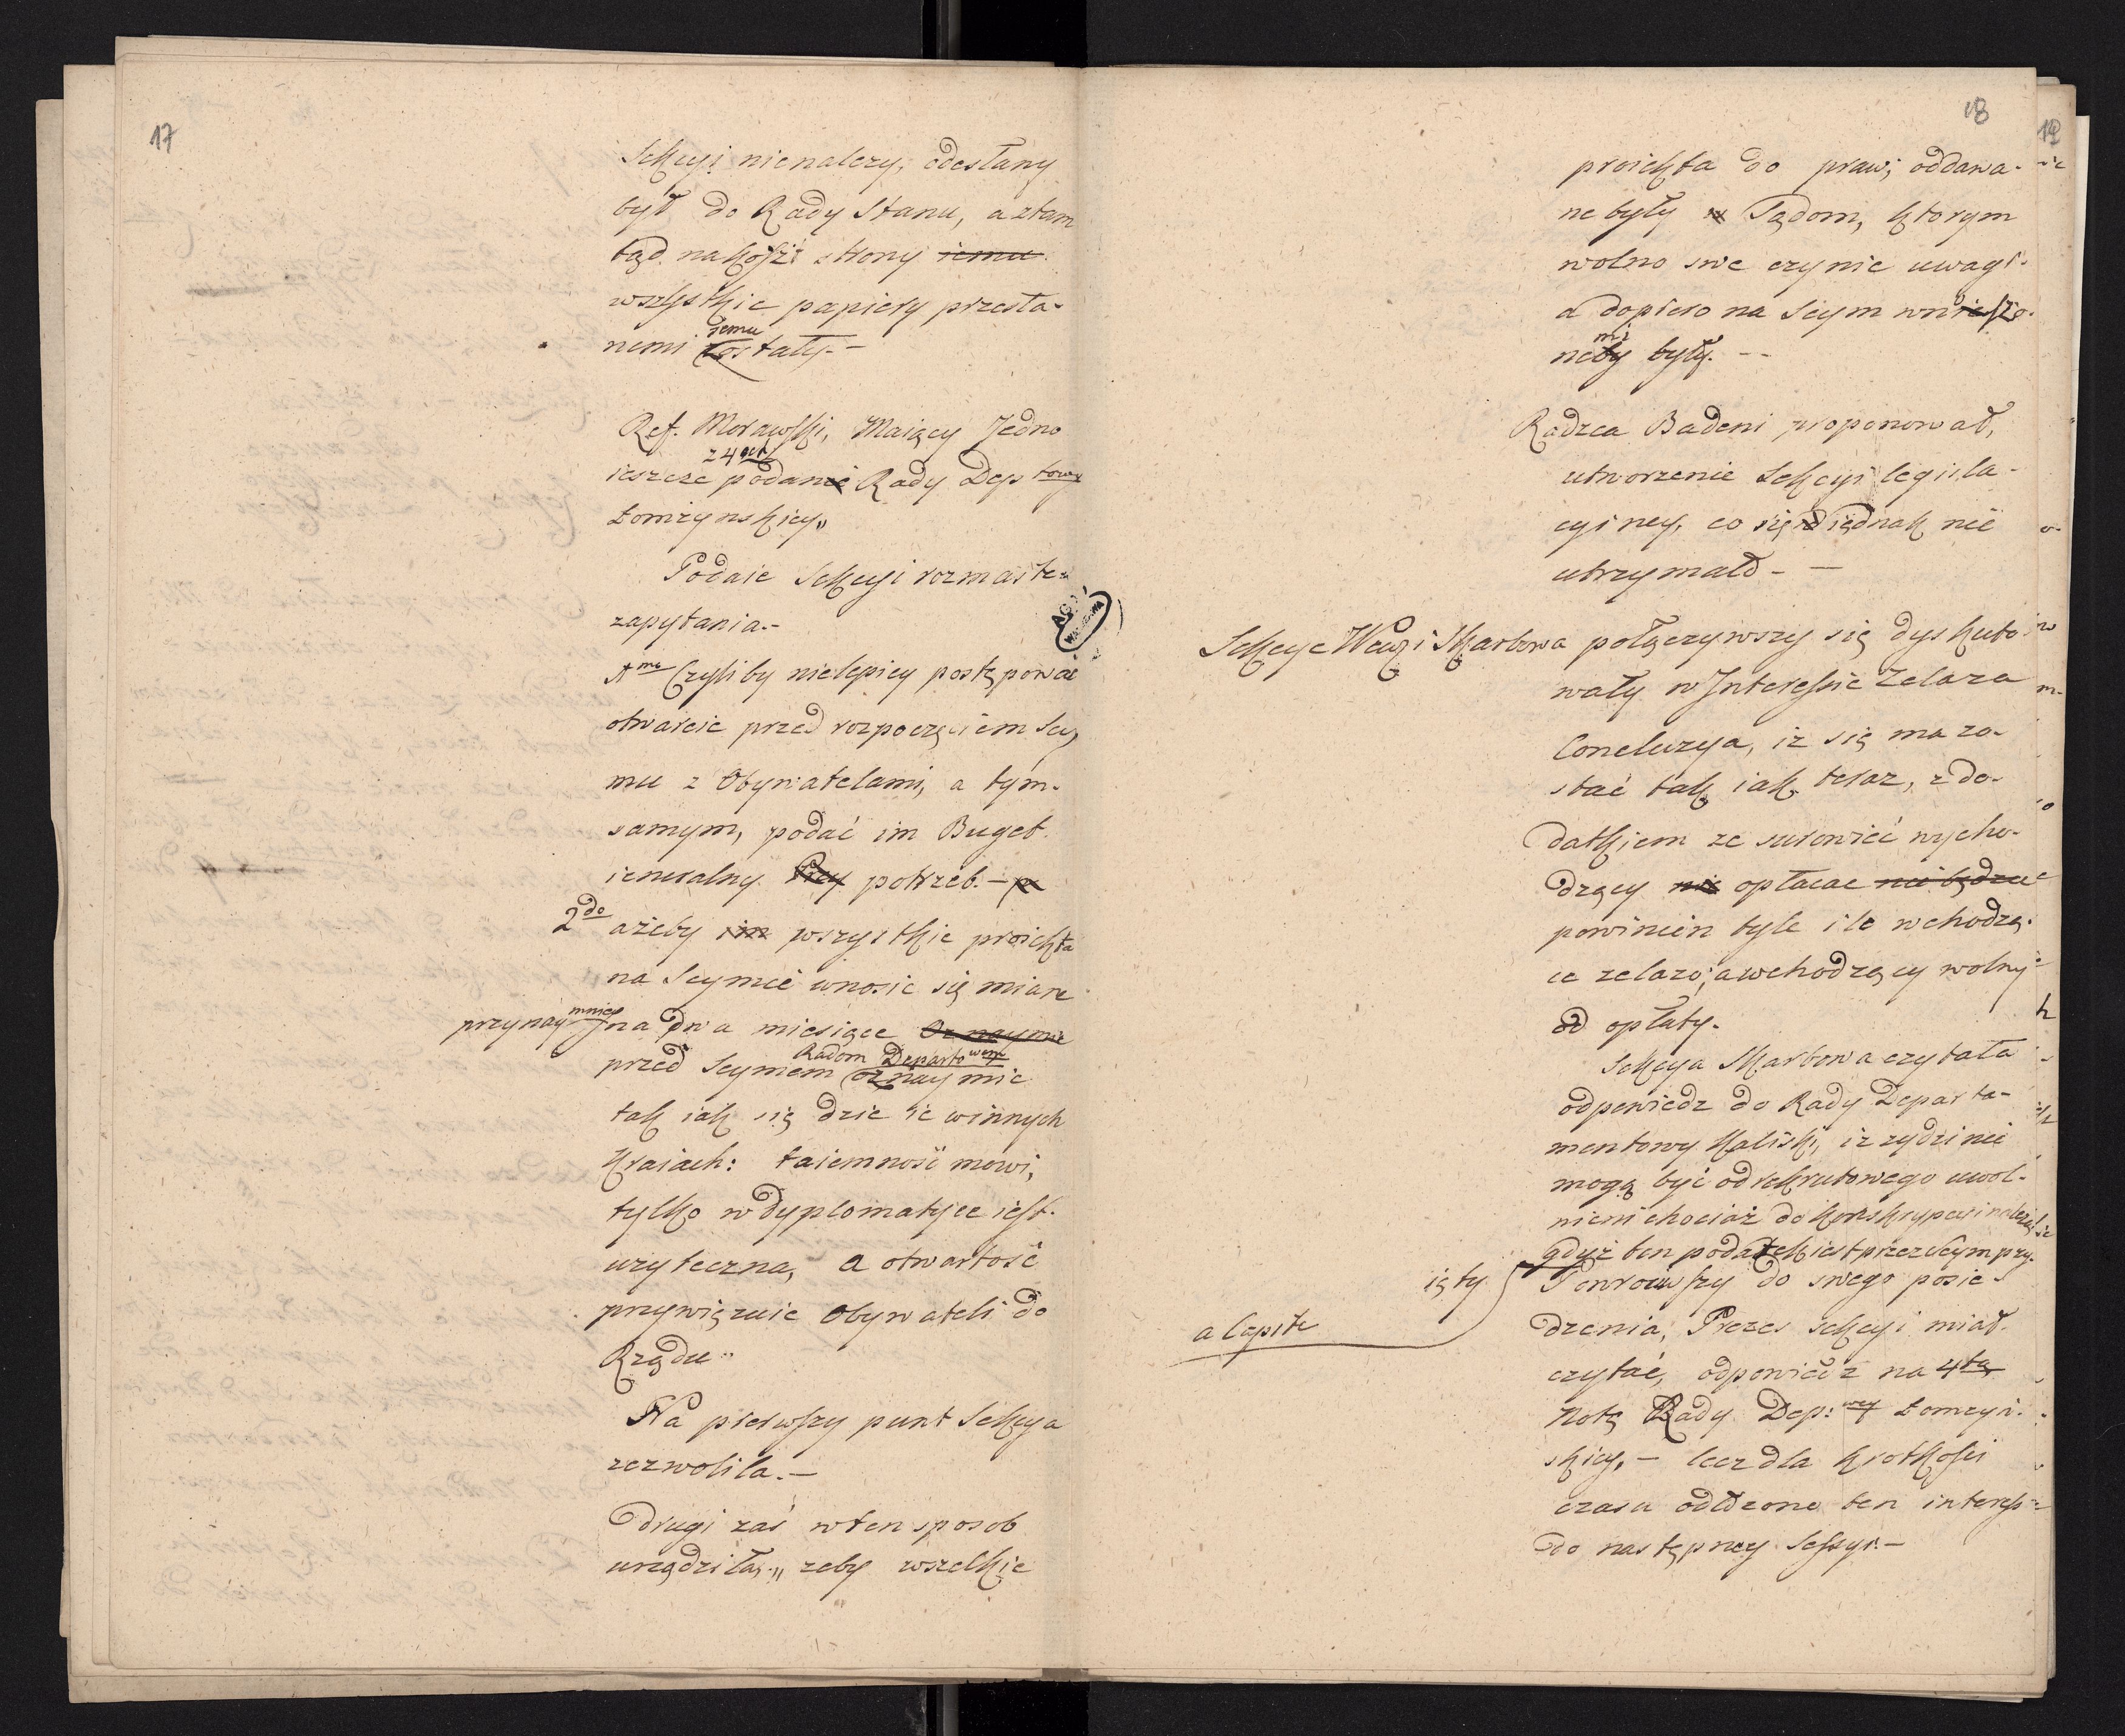 17
Sekcyi nienalezy, odesłany
był do Rady Stanu, a ztam
tąd nakoszt strony iemu
wszystkie papiery przesła-
nemi iemu zostały.-
Ref. Morawski, Maiący Jedno
ieszcze z 4ech podanie Rady Dep towy
Łomżynskiey,,
Podaie Sekcyi rozmaite
zapytania.-
1mo Czyliby nielepiey postępować
otwarcie przed rozpoczęciem Sey
mu z Obywatelami, a tym-
samym, podać im Buget
ieneralny potrzeb.-
2do ażeby im wszystkie proiekta
na Seymie wnosic się miane
przynaymniey na dwa miesiące
przed Seymem Radom Departowem oznaymic
tak iak się dzie ie winnych
Kraiach: taiemność mowi,
tylko w dyplomatyce iest
uzyteczna, a otwartość
przywięzuie Obywateli do
Rządu,,
Na pierwszy punt Sekcya
zezwolila.-
Drugi zaś wten sposob
urządziła,, zeby wszelkie
18
proiekta do praw, oddawa-
ne były Sądom, ktorym
wolno swe czynic uwagi.
a dopiero na Seym wniesio-
nemi były.--
Radzca Badeni proponował,
utworzenie Sekcyi legisla-
cyiney, co się iednak nie
utrzymało--
Sekcye Wew. i Skarbowa połączywszy się dyskuto
wały w Interessie Zelaza
Concluzya, iz się ma zo-
stać tak iak teraz, z do-
datkiem ze surowiec wycho-
dzący nie opłacac nie będzie
powinien tyle ile wchodzą-
ce zelazo; a wchodzący wolny
od opłaty.
Sekcya Skarbowa czytała
odpowiedz do Rady Departa-
mentowy Kaliski, iz zydzi nie
mogą być od rekrutowego uwol-
nieni chociaż do konskrypcyi nalezeli
gdyż ten podatek iest przez Seym przy-
ięty
a Capite
Powrociwszy do swego posie
dzenia, Prezes Sekcyi miał
czytać, odpowiedź na 4tą
Notę Rady Dep: wey Łomzyn-
skiey,- lecz dla krotkosci
czasu odłozono ten interess
do następney Sessyi.-